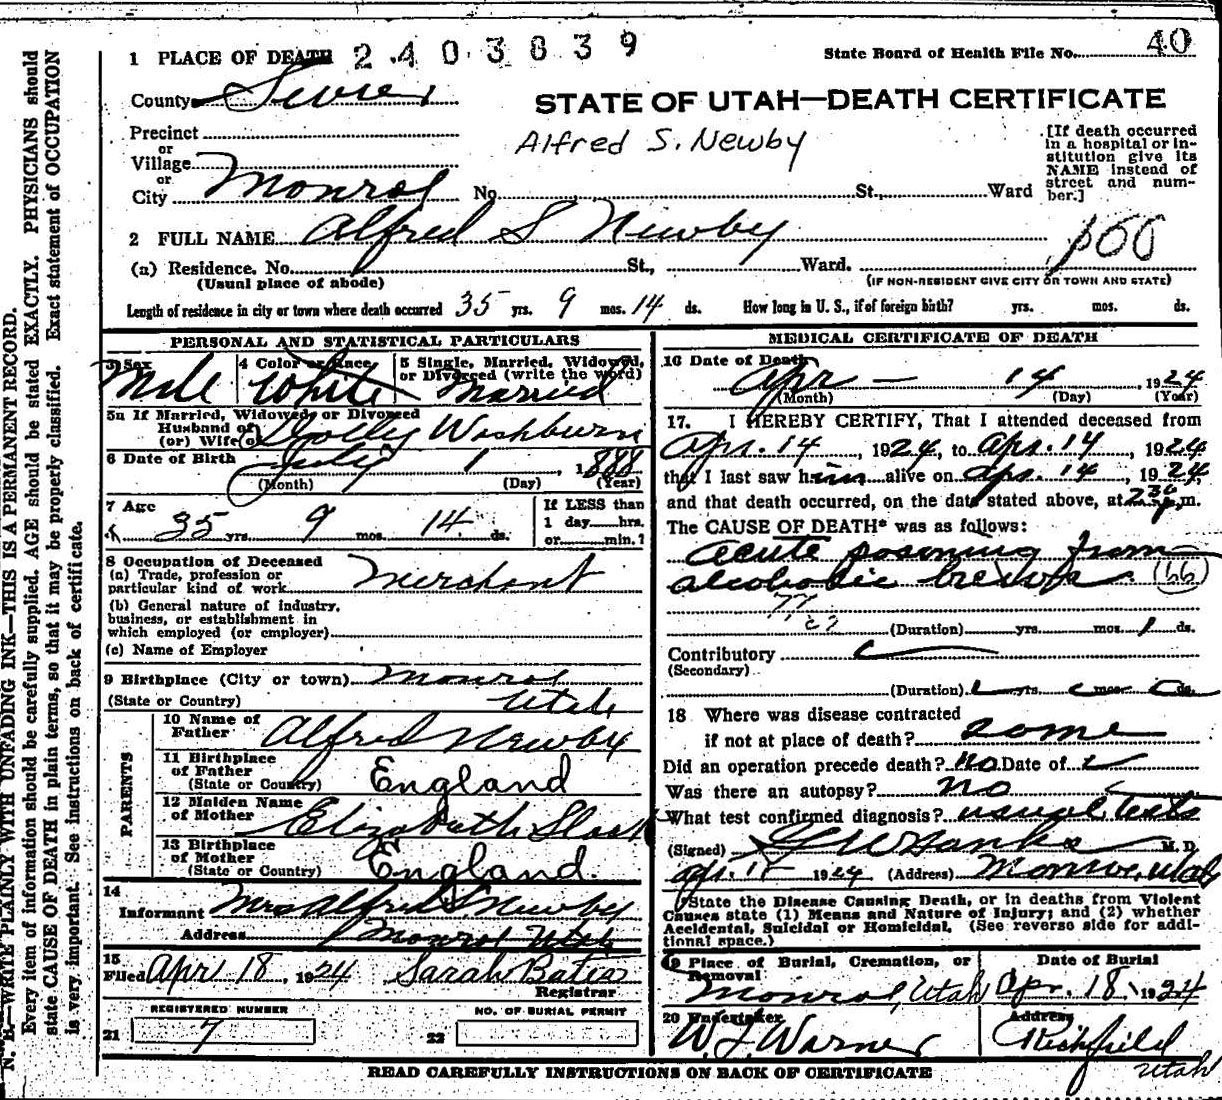 1 PLACE OF DEATH 2403839 State Board of Health File No. 40
County Sevier
STATE OF UTAH—DEATH CERTIFICATE
Precinct
or
Village
or
City Monroe No. St., Ward
Alfred S. Newby
[If death occurred
in a hospital or in-
stitution give its
NAME instead of
street and num-
ber.]
2 FULL NAME Alfred S Newby
(a) Residence. No. St., Ward.
(Usual place of abode) (IF NON-RESIDENT GIVE CITY OR TOWN AND STATE)
Length of residence in city or town where death occurred 35 yrs. 9 mos. 14 ds. How long in U. S., if of foreign birth? yrs. mos. ds.
PERSONAL AND STATISTICAL PARTICULARS
3 Sex Male
4 Color or Race White
5 Single, Married, Widowed,
or Divorced (write the word) Married
5a If Married, Widowed, or Divorced
Husband of
(or) Wife of Dolly Washburn
6 Date of Birth July 1, 1888
(Month) (Day) (Year)
7 Age
35 yrs. 9 mos. 14 ds.
If LESS than
1 day hrs.
or min.?
8 Occupation of Deceased
(a) Trade, profession or
particular kind of work Merchant
(b) General nature of industry,
business, or establishment in
which employed (or employer)
(c) Name of Employer
9 Birthplace (City or town) Monroe
(State or Country) Utah
PARENTS
10 Name of
Father Alfred Newby
11 Birthplace
of Father
(State or Country) England
12 Maiden Name
of Mother Elizabeth
13 Birthplace
of Mother
(State or Country) England.
14
Informant Mrs Alfred S. Newby
Address Monroe Utah
15
Filed Apr 18, 1924 Sarah Bates
Registrar
REGISTERED NUMBER
21 7
NO. OF BURIAL PERMIT
22
MEDICAL CERTIFICATE OF DEATH
16 Date of Death
Apr — 14, 1924
(Month) (Day) (Year)
17. I HEREBY CERTIFY, That I attended deceased from
Apr. 14, 1924, to Apr. 14, 1924
that I last saw him alive on Apr. 14, 1924,
and that death occurred, on the date stated above, at 2 30 p.m.
The CAUSE OF DEATH* was as follows:
acute posoning from
alcoholic brews. (66)
77
(Duration) yrs. mos. 1 ds.
Contributory
(Secondary)
(Duration) yrs. mos. ds.
18 Where was disease contracted
if not at place of death? some
Did an operation precede death? no Date of
Was there an autopsy? no
What test confirmed diagnosis? usual tests
(Signed) M. D.
Apr. 1924 (Address) Monroe, Utah
*State the Disease Causing Death, or in deaths from Violent
Causes state (1) Means and Nature of Injury; and (2) whether
Accidental, Suicidal or Homicidal. (See reverse side for addi-
tional space.)
19 Place of Burial, Cremation, or
Removal
Monroe, Utah
Date of Burial
Apr. 18, 1924
20 Undertaker
W. J. Warner
Address
Richfield
Utah
READ CAREFULLY INSTRUCTIONS ON BACK OF CERTIFICATE
N. B.—WRITE PLAINLY WITH UNFADING INK—THIS IS A PERMANENT RECORD.
Every item of information should be carefully supplied. AGE should be stated EXACTLY. PHYSICIANS should
state CAUSE OF DEATH in plain terms, so that it may be properly classified. Exact statement of OCCUPATION
is very important. See instructions on back of certificate.